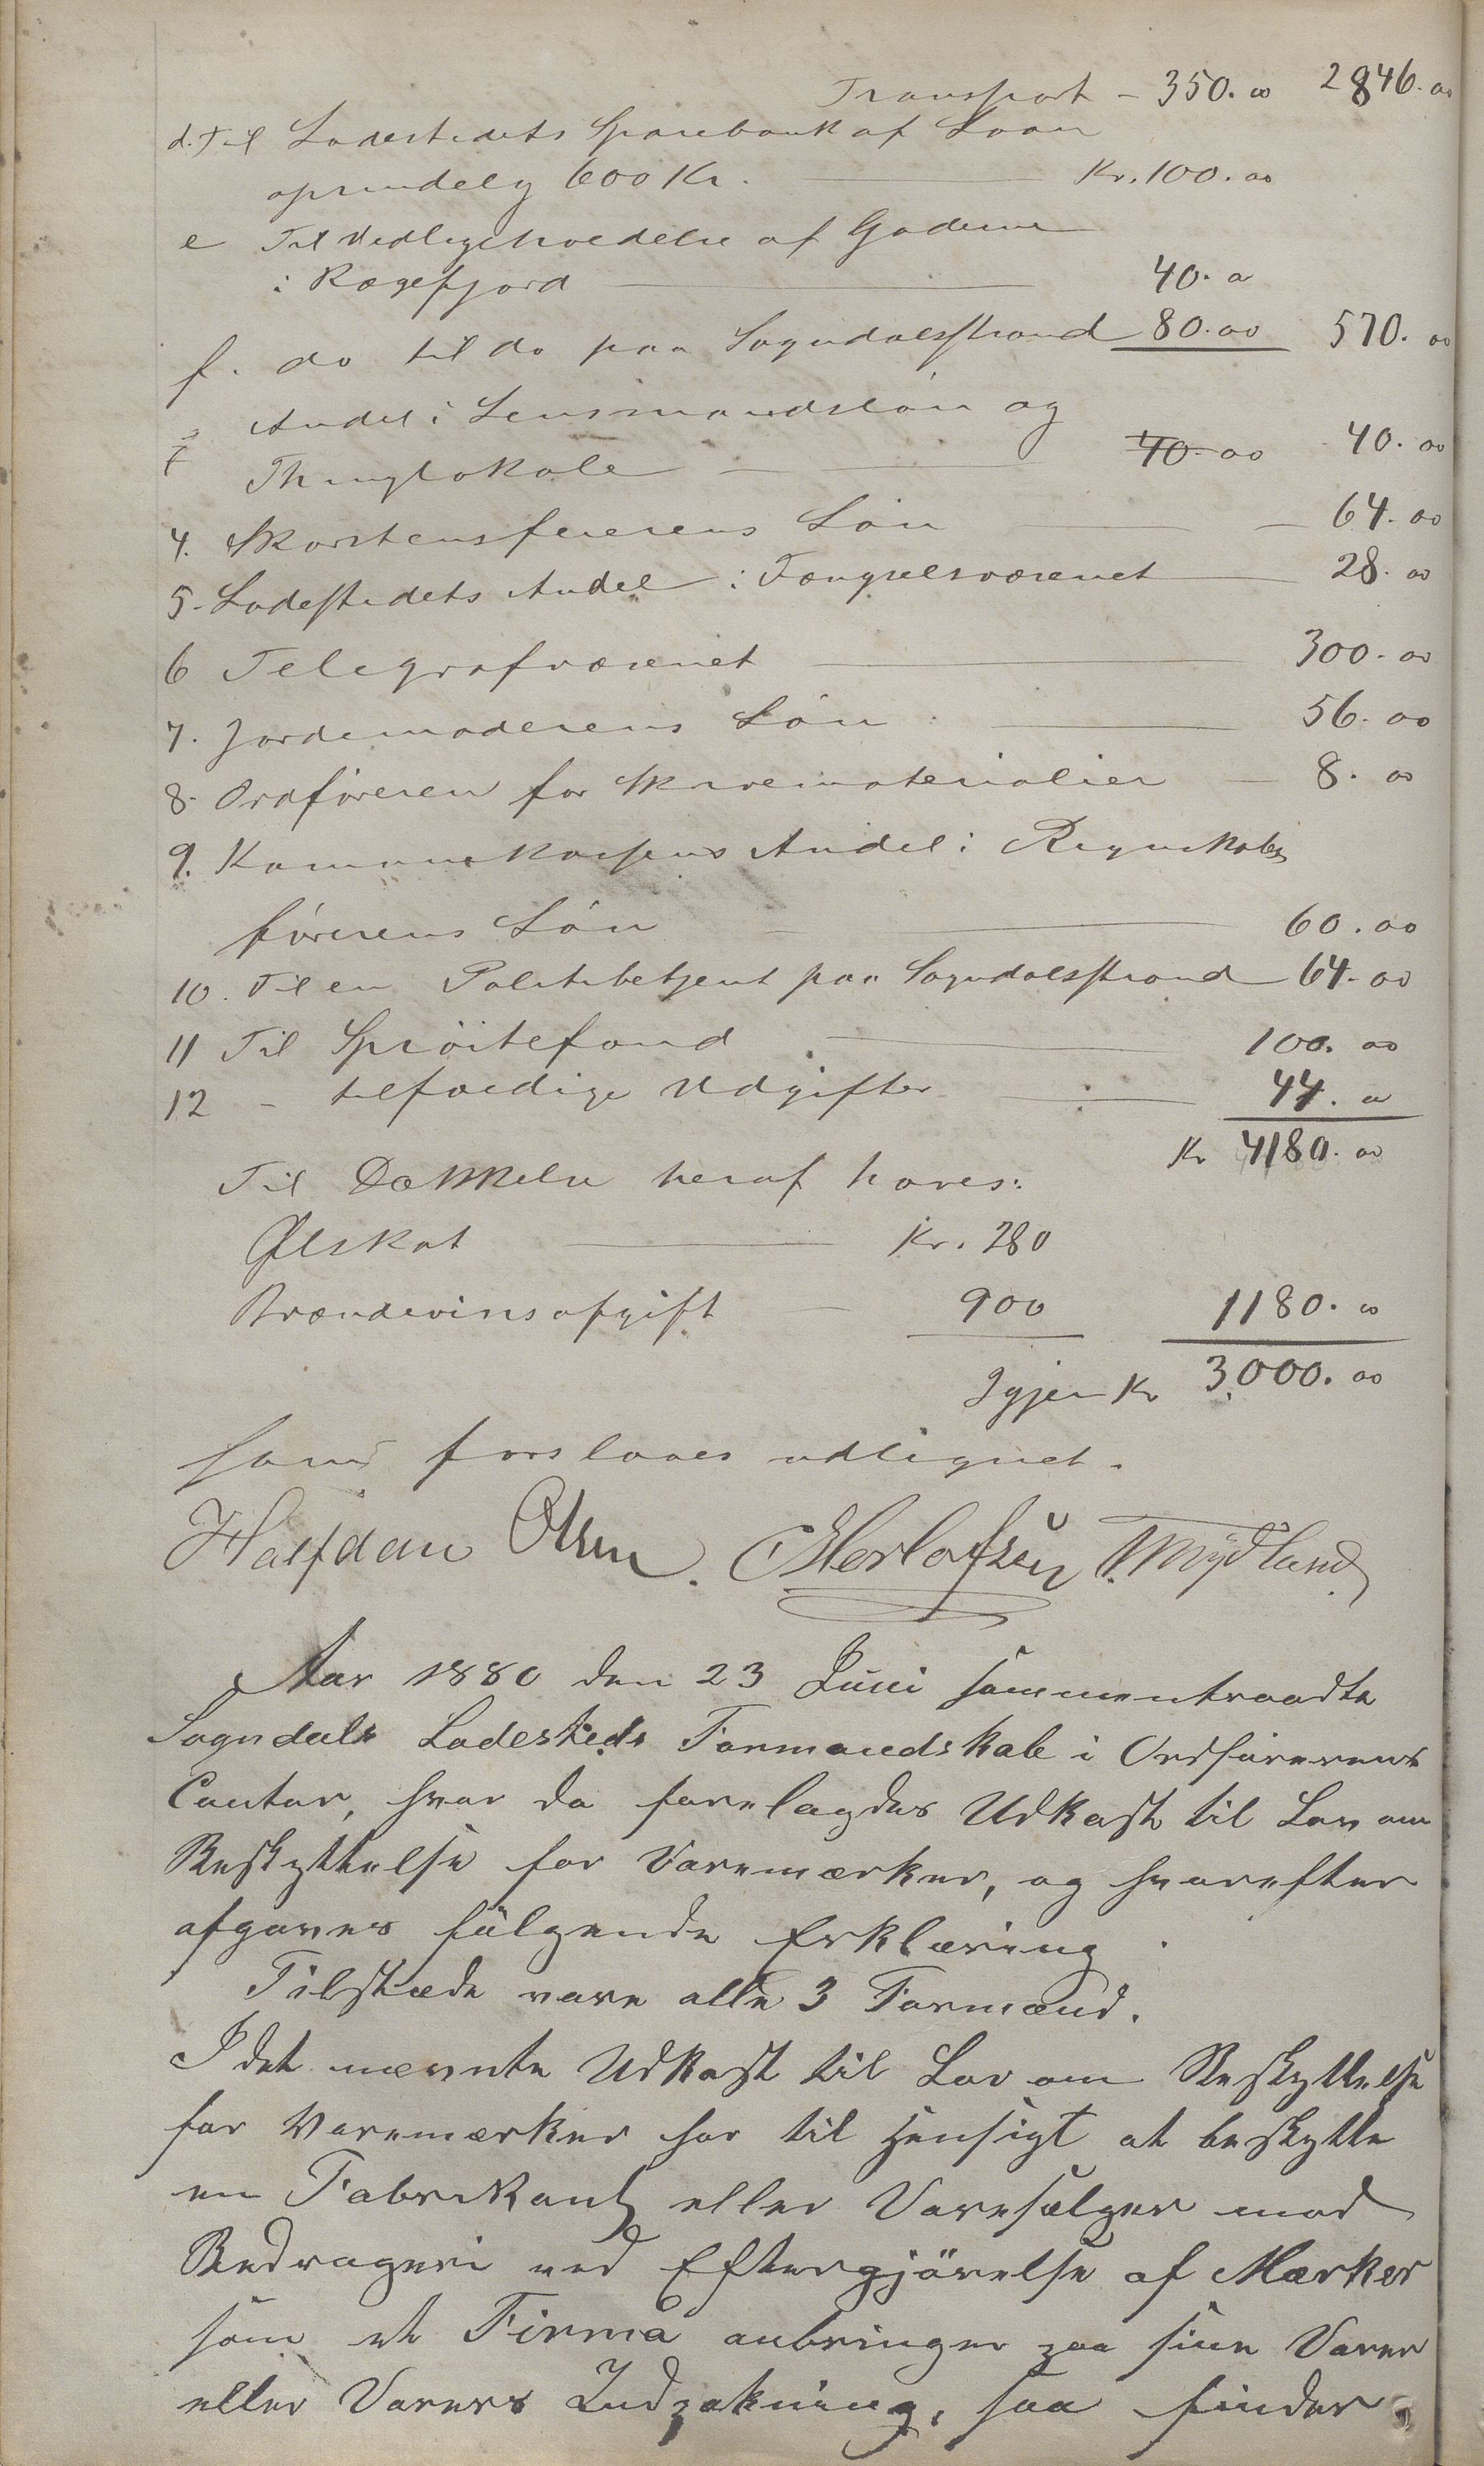 Transport – 350. 00 2846. 00
d. Til Ladestedets Sparebank af Laan
oprindelig 600 Kr. Kr. 100. 00
e Til Vedligeholdelse af Gaderne
i Rægefjord 40. 00
f. do til do paa Sogndalsstrand 80. 00 570. 00
Andel i Lensmandsløn og
Thinglokale 40. 00 40. 00
4. Skorstensfeierens Løn 64. 00
5. Ladestedets Andel i Fængselsvæsenet 28. 00
6 Telegrafvæsenet 300. 00
7. Jordemoderens Løn 56. 00
8. Ordføreren for Skrivematerialier 8. 00
9. Kommunekassens Andel i Regnskabs
førerens Løn 60. 00
10. Til en Politibetjent paa Sogndalsstrand 64. 00
11 Til Sprøitefond 100. 00
12 – tilfældige Udgifter 44. 00
Kr 4180. 00
Til Dækkelse heraf haves:
Ølskat Kr. 280
Brændevinsafgift 900 1180. 00
Igjen Kr 3000. 00
som foreslaaes udlignet.
Halfdan Olsen. Herlofsen T. Mydland
Aar 1880 den 23 Juni sammentraadte
Sogndals Ladesteds Formandskab i Ordførerens
Contor, hvor da forelagdes Udkast til Lov om
Beskyttelse for Varemærker, og hvorefter
afgaves følgende Erklæring.
Tilstæde vare alle 3 Formænd.
I det nævnte Udkast til Lov om Beskyttelse
for Varemærker har til Hensigt at beskytte
en Fabrikant eller Varesælger mod
Bedrageri ved Eftergjørelse af Mærker
som et Firma anbringer paa sine Varer
eller Varers Indpakning, saa finder